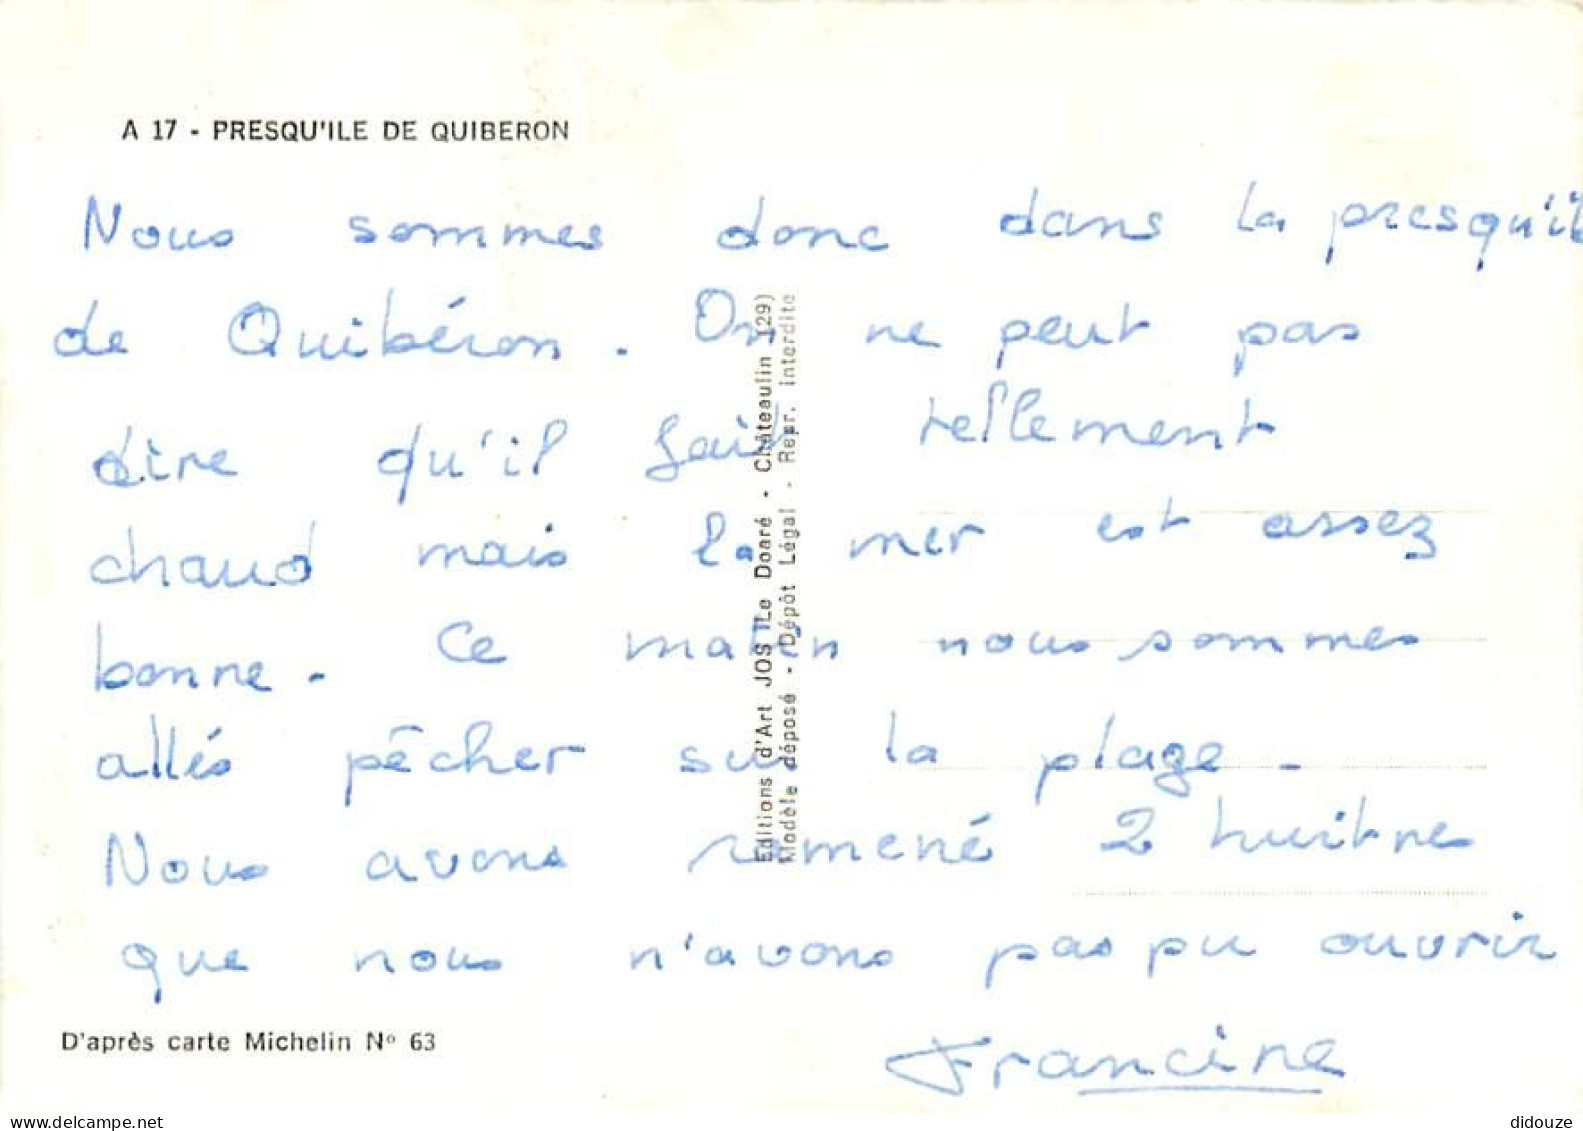 A 17 - PRESQU'ILE DE QUIBERON
Nous sommes donc dans la presqu'il
de Quibéron. On ne peut pas
dire qu'il fait tellement
chaud mais la mer est assez
bonne. Ce matin nous sommes
allés pêcher sur la plage.
Nous avons ramené 2 huitres
que nous n'avons pas pu ouvrir
Francine
Editions d'Art JOS Le Doaré - Châteaulin (29)
Modèle déposé - Dépôt Légal - Repr. Interdite
D'après carte Michelin Nº 63
didouze